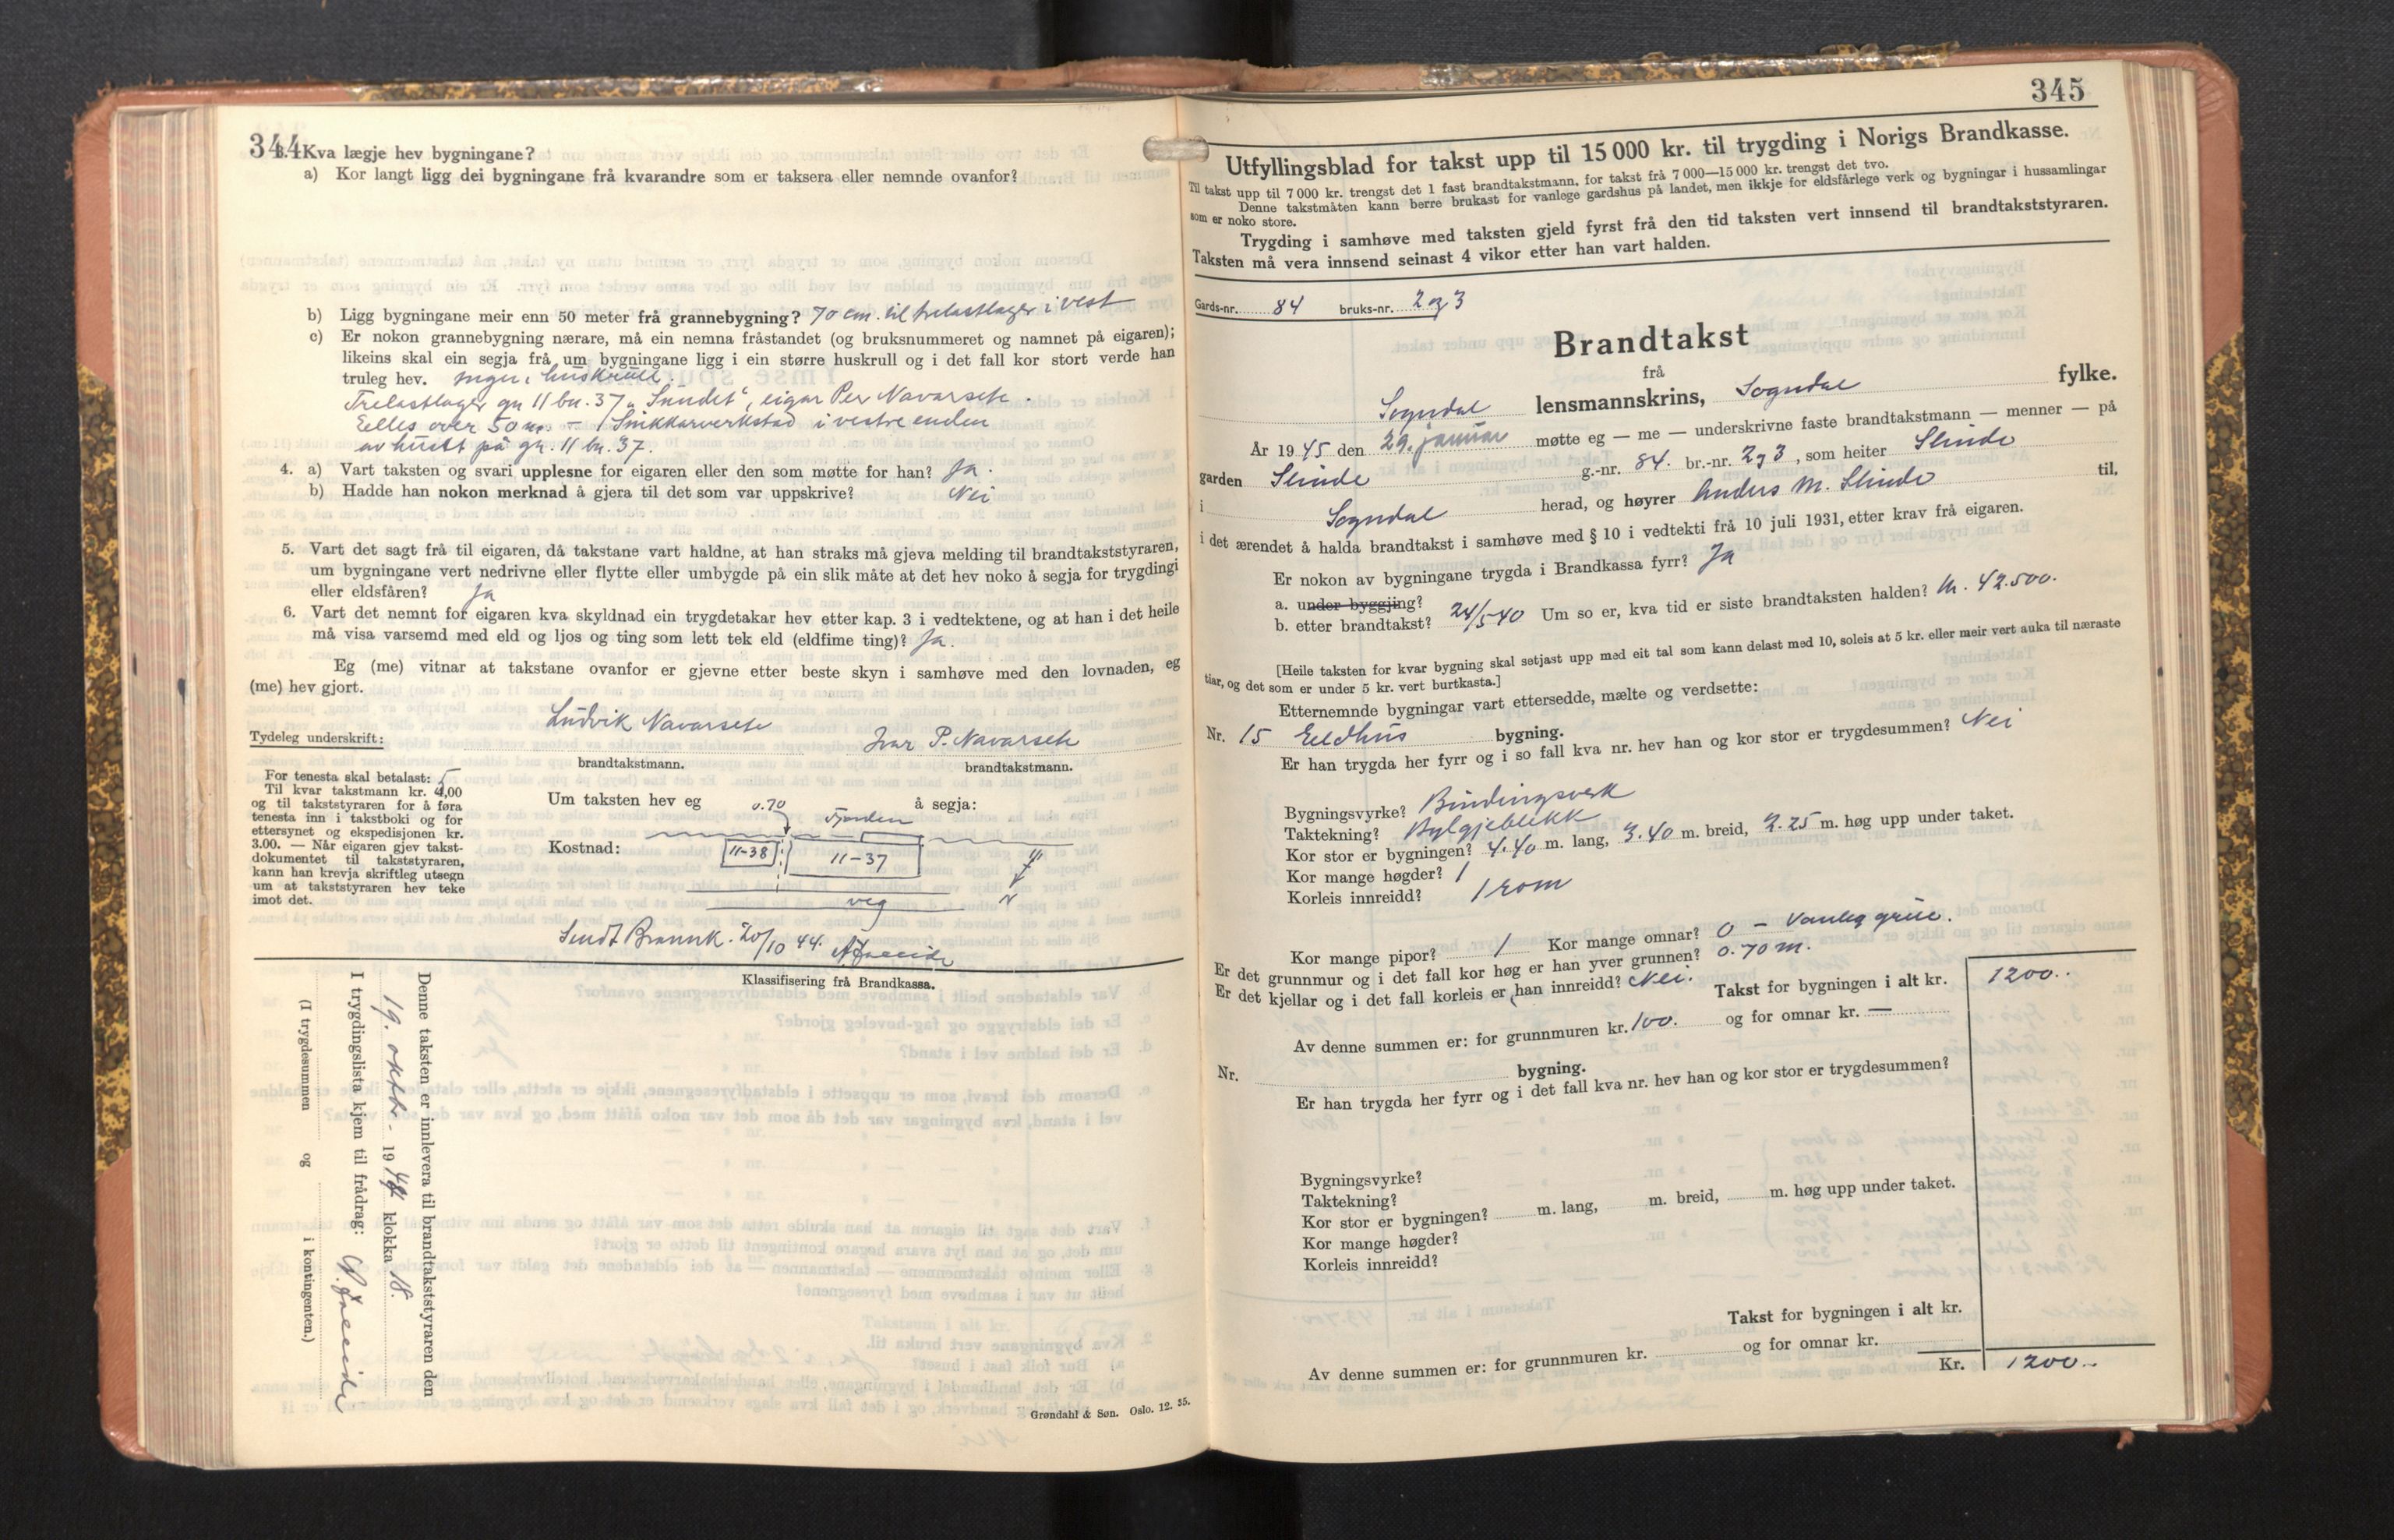 344
3. Kva lægje hev bygningane?
a) Kor langt ligg dei bygningane frå kvarandre som er taksera eller nemnde ovanfor?
b) Ligg bygningane meir enn 50 meter frå grannebygning? 70 cm. til trelastlager i vest
c) Er nokon grannebygning nærare, må ein nemna fråstandet (og bruksnummeret og namnet på eigaren);
likeins skal ein segja frå um bygningane ligg i ein større huskrull og i det fall kor stort verde han
truleg hev. Ingen huskrull.
Trelastlager gn 11 bn. 37 "Sundet", eigar Per Navarsete.
Elles over 50 m. – 1 Snikkarverkstad i vestre enden
av huset på gn. 11 bn. 37.
4. a) Vart taksten og svari upplesne for eigaren eller den som møtte for han? Ja.
b) Hadde han nokon merknad å gjera til det som var uppskrive? Nei
5. Vart det sagt frå til eigaren, då takstane vart haldne, at han straks må gjeva melding til brandtakststyraren,
um bygningane vert nedrivne eller flytte eller umbygde på ein slik måte at det hev noko å segja for trygdingi
eller eldsfåren? Ja
6. Vart det nemnt for eigaren kva skyldnad ein trygdetakar hev etter kap. 3 i vedtektene, og at han i det heile
må visa varsemd med eld og ljos og ting som lett tek eld (eldfime ting)? Ja.
Eg (me) vitnar at takstane ovanfor er gjevne etter beste skyn i samhøve med den lovnaden, eg
(me) hev gjort.
Ludvik Navarsete Ivar P. Navarsete
Tydeleg underskrift:
brandtakstmann. brandtakstmann.
For tenesta skal betalast: 5
Til kvar takstmann kr. 4,00
og til takststyraren for å føra
tenesta inn i takstboki og for
ettersynet og ekspedisjonen kr.
3.00. — Når eigaren gjev takst-
dokumentet til takststyraren,
kann han krevja skriftleg utsegn
um at takststyraren hev teke
imot det.
Um taksten hev eg å segja:
0.70
Fjorden
Kostnad:
11-38 11-37
N
veg
Sendt Brannk. 20/10 44.
Klassifisering frå Brandkassa.
Denne taksten er innlevera til brandtakststyraren den
19. oktbr. 1944 klokka 18.
I trygdingslista kjem til frådrag:
(I trygdesummen og i kontingenten.)
Grøndahl & Søn. Oslo. 12. 35.
345
Utfyllingsblad for takst upp til 15 000 kr. til trygding i Norigs Brandkasse.
Til takst upp til 7 000 kr. trengst det 1 fast brandtakstmann, for takst frå 7 000—15 000 kr. trengst det tvo.
Denne takstmåten kann berre brukast for vanlege gardshus på landet, men ikkje for eldsfårlege verk og bygningar i hussamlingar
som er noko store.
Trygding i samhøve med taksten gjeld fyrst frå den tid taksten vert innsend til brandtakststyraren.
Taksten må vera innsend seinast 4 vikor etter han vart halden.
Gards-nr. 84 bruks-nr. 2 og 3
Brandtakst
frå
Sogndal lensmannskrins, Sogndal fylke.
År 1945 den 29. januar møtte eg — me — underskrivne faste brandtakstmann — menner — på
garden Slinde g.-nr. 84. br.-nr. 2 og 3, som heiter Slinde
i Sogndal herad, og høyrer Anders M. Slinde til,
i det ærendet å halda brandtakst i samhøve med § 10 i vedtekti frå 10 juli 1931, etter krav frå eigaren.
Er nokon av bygningane trygda i Brandkassa fyrr? Ja
a. under byggjing?
b. etter brandtakst? 24/5-40 Um so er, kva tid er siste brandtaksten halden? kr. 42.500.
[Heile taksten for kvar bygning skal setjast upp med eit tal som kann delast med 10, soleis at 5 kr. eller meir vert auka til næraste
tiar, og det som er under 5 kr. vert burtkasta.]
Etternemnde bygningar vart ettersedde, mælte og verdsette:
Nr. 15 Eldhus bygning.
Er han trygda her fyrr og i so fall kva nr. hev han og kor stor er trygdesummen? Nei
Bygningsvyrke? Bindingsverk
Taktekning? Bylgjeblikk
Kor stor er bygningen? 4.40 m. lang, 3.40 m. breid, 2.25 m. høg upp under taket.
Kor mange høgder? 1
Korleis innreidd? 1 rom
Kor mange pipor? 1 Kor mange omnar? 0 – Vanleg grue.
Er det grunnmur og i det fall kor høg er han yver grunnen? 0.70 m.
Er det kjellar og i det fall korleis er han innreidd? Nei.
Takst for bygningen i alt kr. 1200..
Av denne summen er: for grunnmuren kr. 100. og for omnar kr. —
Nr. bygning.
Er han trygda her fyrr og i det fall kva nr. hev han og kor stor er trygdesummen?
Bygningsvyrke?
Taktekning?
Kor stor er bygningen? m. lang, m. breid, m. høg upp under taket.
Kor mange høgder?
Korleis innreidd?
Takst for bygningen i alt kr.
Av denne summen er: for grunnmuren kr. og for omnar kr.
Kr. 1200..